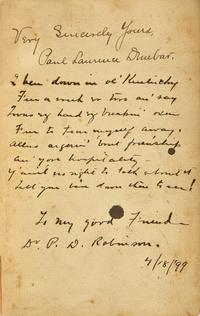 Very Sincerely Yours,
Paul Laurence Dunbar.
I been down in ol' Kentucky
Fur a week or two an' say
'Twas ez hard ez breakin' oxen
Fur to tear myself away.
Allus argerin' 'bout friendship
An' yore hospitality –
Y' ain't no right to talk about it
Tell you been down there to see!
To My good Friend
Dr. P. D. Robinson.
4/18/99